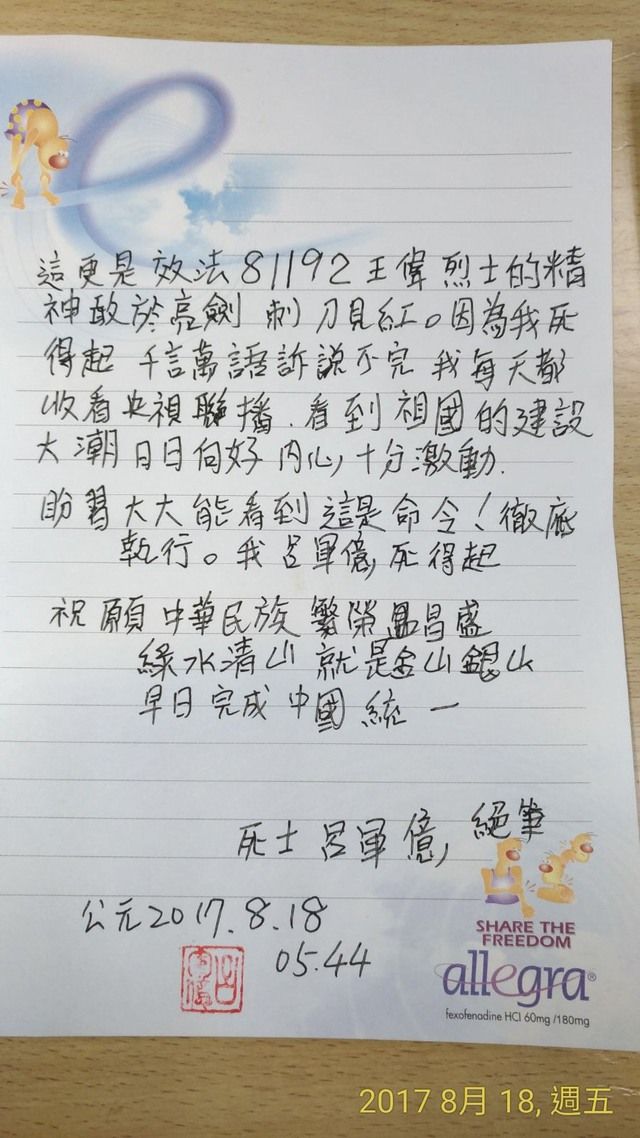 這更是效法81192王偉烈士的精
神敢於亮劍 刺刀見紅。因為我死
得起 千言萬語訴說不完 我每天都
收看央視聯播.看到祖國的建設
大潮日日向好 內心十分激動.
盼習大大能看到 這是命令!徹底
執行。我呂軍億,死得起
祝願中華民族繁榮昌盛
綠水清山 就是金山銀山
早日完成中國統一
死士呂軍億,絕筆
公元2017.8.18
05.44
SHARE THE
FREEDOM
allegra®
fexofenadine HCl 60mg /180mg
2017 8月 18, 週五